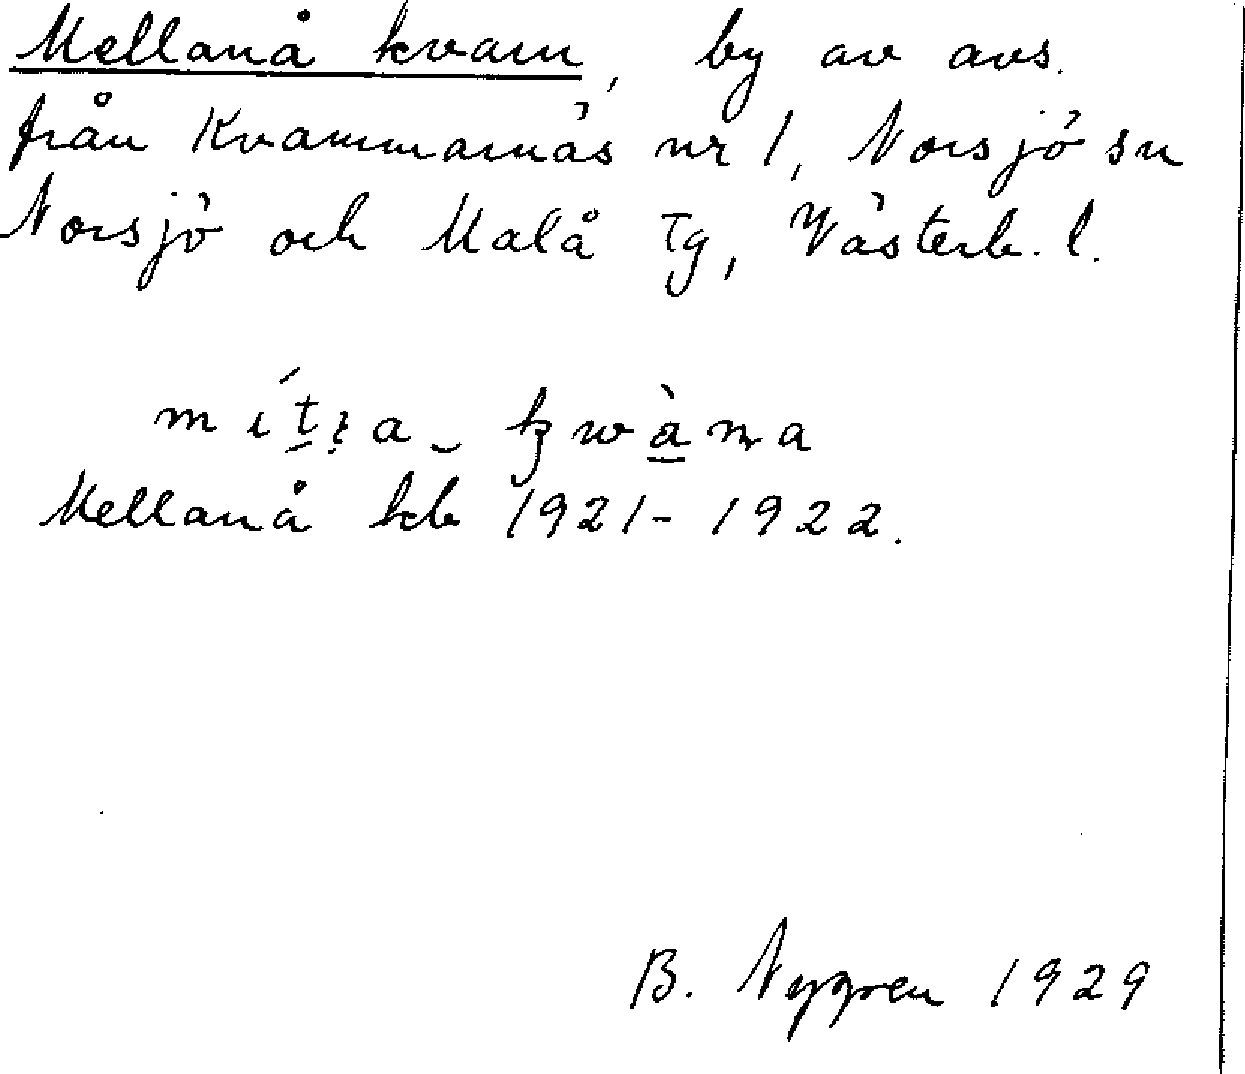 Mellanå kvarn, by av avs.
från Kvarnmarnäs nr 1, Norsjö sn
Norsjö och Malå Tg, Västerb. l.
Mellanå kb 1921-1922.
B. Nygren 1929